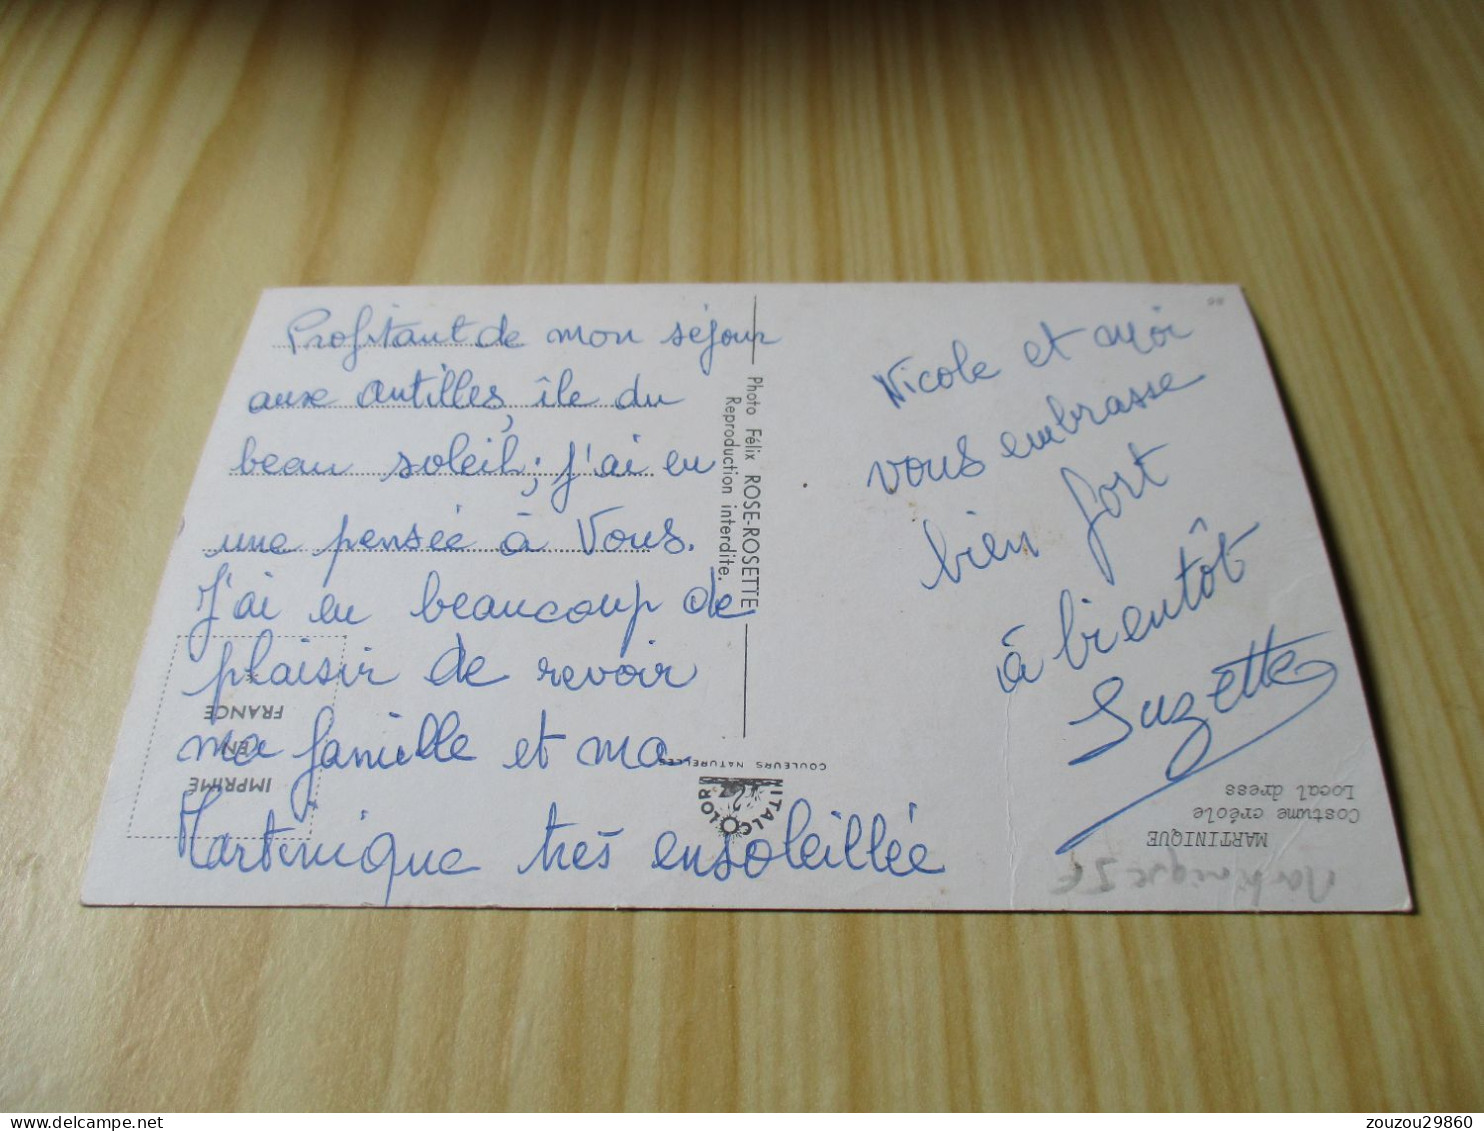 Profitant de mon séjour
aux Antilles, île du
beau soleil; j'ai eu
une pensée à Vous.
J'ai eu beaucoup de
plaisir de revoir
ma famille et ma
Martinique très ensoleillée
Nicole et moi
vous embrasse
bien fort
à bientôt
Suzette
Photo Félix ROSE-ROSETTE
Reproduction interdite.
IMPRIMÉ
EN
FRANCE
ITALCOLOR
COULEURS NATURELLES
MARTINIQUE
Costume créole
Local dress
Martinique
zouzou29860